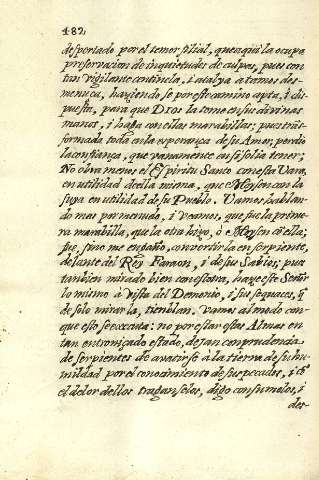 182
despertado por el temor filial, que aqui la ocupa
preservacion de inquietudes de culpas, pues con
tan vigilante centinela, i atalya a temores des-
menuça, haçiendo se por este camino apta, i dis
puesta, para que Dios la tome en sus divinas
manos, i haga con ellas marabillas; pues tràs
formada toda en la esperança de su Amor, perdio
la confiança, que vanamente en si solia tener;
No obra menos el Espiritu Santo con esta Vara,
en utilidad de ella misma, que Moysen con la
suya en utilidad de su Pueblo. Vamos hablan-
do mas por menudo, i veamos, que fue la prime-
ra marabilla, que la otra hizo, ò Moysen cō ella;
fue, sino me engaño, convertirla en serpiente,
delante del Rey Faraon, i de sus Sabios; pues
tanbien mirado bien con esotra, haze este Señor
lo mismo à Vista del Demonio, i sus sequaces, q̄
de solo mirarla, tienblan. Vamos al modo con-
que esto se
no por estar estas Almas en
tan entroniçado estado, dejan con prudencia
de serpientes de
à la tierra de su hu-
mildad por el conocimiento de sus pecados, i cō
el dolor dellos tragan selos, digo consumelos, i
des-